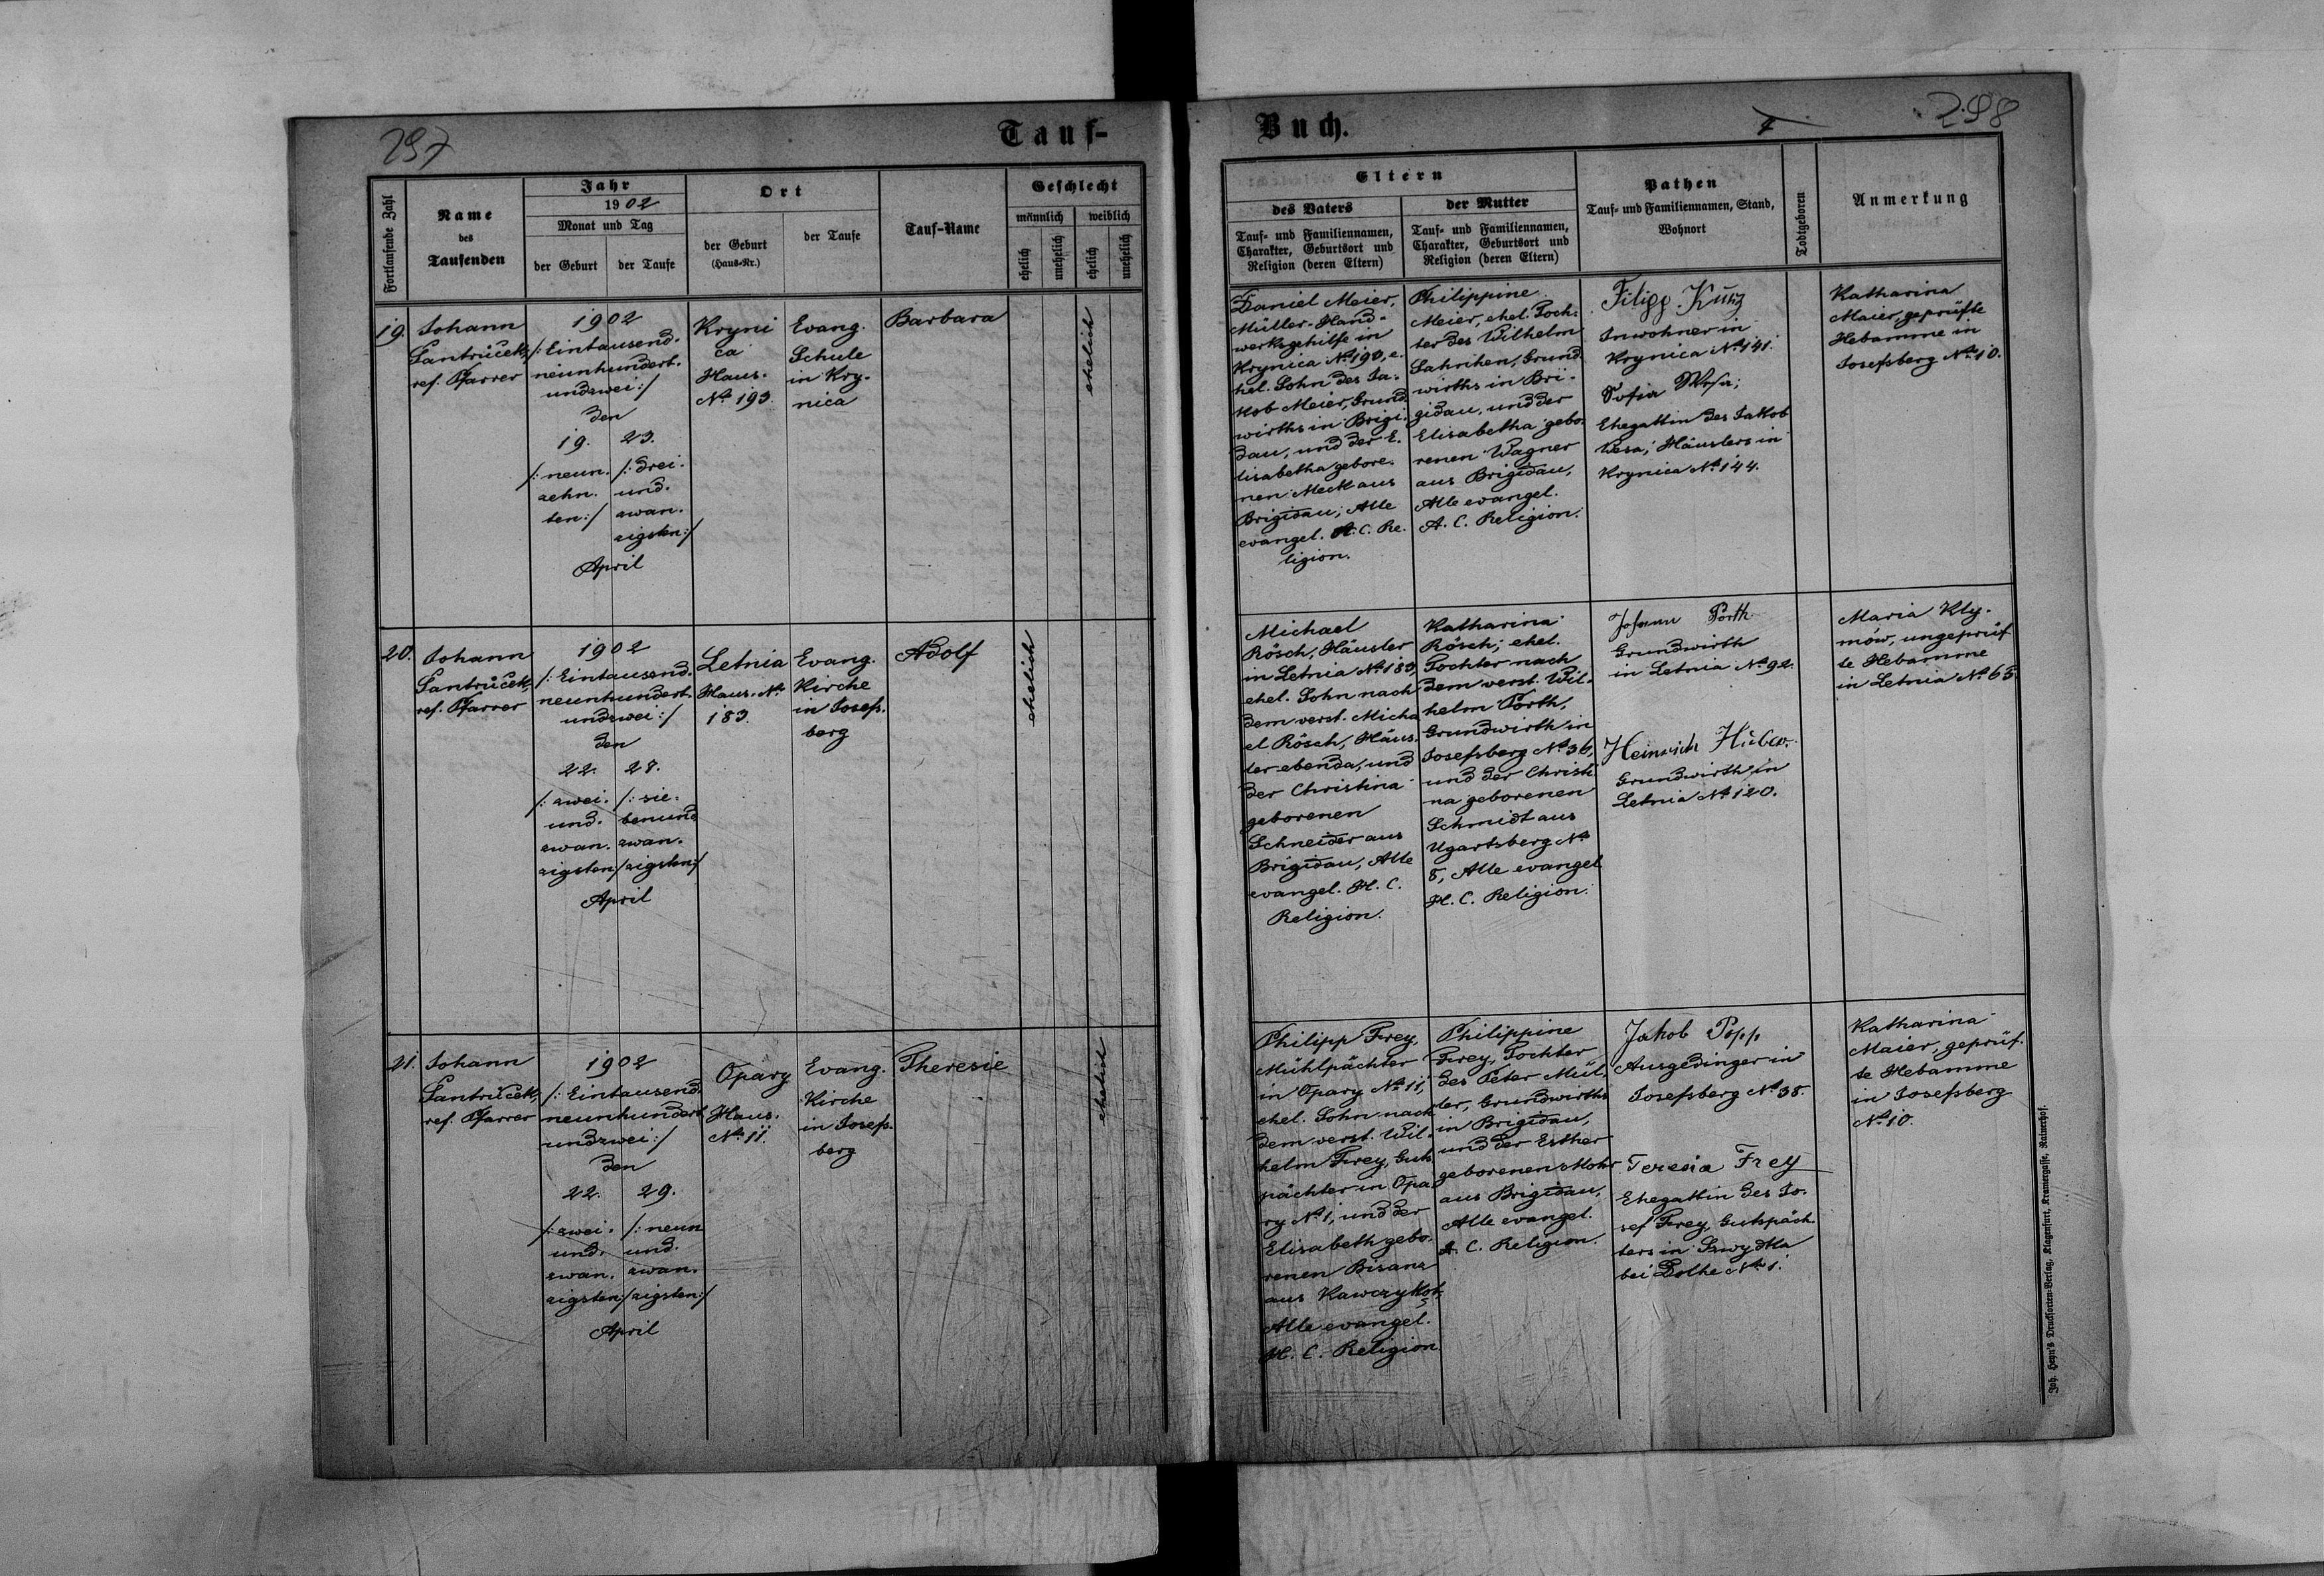 297
Tauf-
Fortlaufende Zahl
Name
des
Taufenden
Jahr
1902
Monat und Tag
der Geburt
der Taufe
Ort
der Geburt
(Haus-Nr.)
der Taufe
Tauf-Name
Geschlecht
männlich
weiblich
ehelich
unehelich
ehelich
unehelich
19.
Johann
Šantrůček,
ref. Pfarrer
1902
/: Eintausend-
neunhundert-
undzwei :/
den
19.
/: neun-
zehn-
ten :/
23.
/: drei-
und-
zwan-
zigsten :/
April
Kryni
ca
Haus-
No 193.
Evang.
Schule
in Kry-
nica
Barbara
ehelich
20.
Johann
Šantrůček,
ref. Pfarrer
1902
/: Eintausend-
neunhundert-
undzwei :/
den
22.
/: zwei-
und-
zwan-
zigsten :/
27.
/: sie-
benund
zwan-
zigsten :/
April
Letnia
Haus-No
183.
Evang.
Kirche
in Josefs-
berg
Adolf
ehelich
21.
Johann
Šantrůček,
ref. Pfarrer
1902
/: Eintausend-
neunhundert
undzwei :/
den
22.
/: zwei-
und-
zwan-
zigsten :/
29.
/: neun
und-
zwan-
zigsten :/
April
Opary
Haus-
No 11.
Evang.
Kirche
in Josefs-
berg
Theresie
ehelich
Buch.
298
Eltern
des Vaters
Tauf- und Familiennamen,
Charakter, Geburtsort und
Religion (deren Eltern)
der Mutter
Tauf- und Familiennamen,
Charakter, Geburtsort und
Religion (deren Eltern)
Pathen
Tauf- und Familiennamen, Stand,
Wohnort
Todtgeboren
Anmerkung
Daniel Meier,
Müller-Hand-
werksgehilfe in
Krynica No 193, e-
hel. Sohn des Ja-
kob Meier, Grund-
wirths in Brigi-
dau, und der E-
lisabetha gebore-
nen Meck aus
Brigidau; Alle
evangel. A. C. Re-
ligion.
Philippine
Meier, ehel. Toch-
ter des Wilhelm
Grund
wirths in Bri-
gidau, und der
Elisabetha gebo-
renen Wagner
aus Brigidau,
Alle evangel.
A. C. Religion.
Filipp Kunz
Inwohner in
Krynica No 141.
Sofia
Ehegattin des Jakob
Wesa, Häuslers in
Krynica No 144.
Katharina
Maier, geprüfte
Hebamme in
Josefsberg No 10.
Michael
Rösch, Häusler
in Letnia No 183,
ehel. Sohn nach
dem verst. Micha
el Rösch, Häus-
ler ebenda, und
der Christina
geborenen
Schneider aus
Brigidau, Alle
evangel. H. C.
Religion.
Katharina
Rösch, ehel.
Tochter nach
dem verst. Wil-
helm Porth,
Grundwirth in
Josefsberg No 36,
und der Christi
na geborenen
Schmidt aus
Ugartsberg No
8, Alle evangel.
H. C. Religion.
Johann Porth
Grundwirth
in Letnia No 92.
Heinrich Huber.
Grundwirth in
Letnia No 120.
Maria Kly-
mów, ungeprüf
te Hebamme
in Letnia No 65.
Philipp Frey,
Mühlpächter
in Opary No 11,
ehel. Sohn nach
dem verst. Wil-
helm Frey, Guts
pächter in Opa-
ry No 1, und der
Elisabeth gebo-
renen Bisanz
aus
Alle evangel.
H. C. Religion.
Philippine
Frey, Tochter
des Peter Mül-
ler, Grundwirths
in Brigidau,
und der Esther
geborenen Mohr
aus Brigidau,
Alle evangel.
A. C. Religion.
Jakob Popp
Ausgedinger in
Josefsberg No 38.
Teresia Frey
Ehegattin des Jo-
sef Frey, Gutspäch-
ters in
bei No 1.
Katharina
Maier, geprüf-
te Hebamme
in Josefsberg
No 10.
Joh. Heyn's Drucksorten-Verlag, Klagenfurt, Kramergasse, Rainerhof.